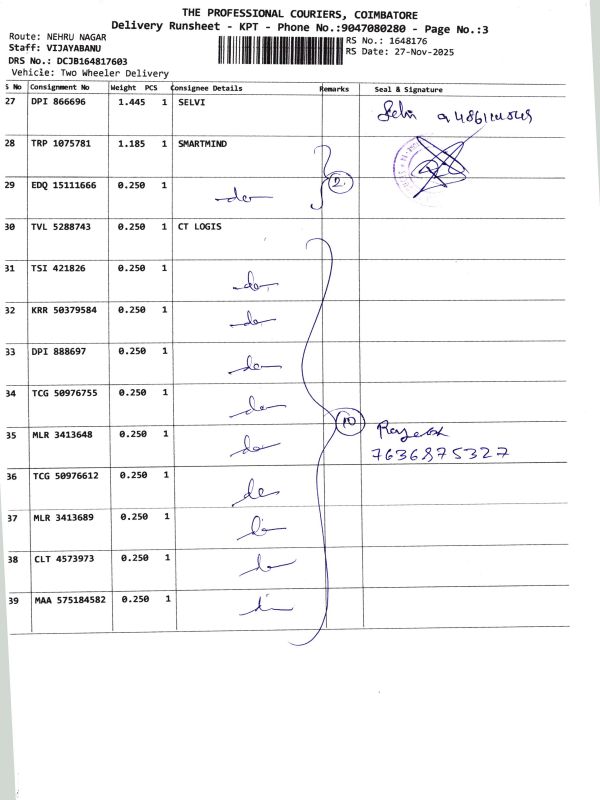 THE PROFESSIONAL COURIERS, COIMBATORE
Delivery Runsheet - KPT - Phone No.:9047080280 - Page No.:3
Route: NEHRU NAGAR
Staff: VIJAYABANU
DRS No.: DCJB164817603
Vehicle: Two Wheeler Delivery
RS No.: 1648176
RS Date: 27-Nov-2025
S No Consignment No Weight PCS Consignee Details Remarks Seal & Signature
27 DPI 866696 1.445 1 SELVI
28 TRP 1075781 1.185 1 SMARTMIND
29 EDQ 15111666 0.250 1 2
30 TVL 5288743 0.250 1 CT LOGIS
31 TSI 421826 0.250 1
32 KRR 50379584 0.250 1
33 DPI 888697 0.250 1
34 TCG 50976755 0.250 1
35 MLR 3413648 0.250 1 10 7636875327
36 TCG 50976612 0.250 1
37 MLR 3413689 0.250 1
38 CLT 4573973 0.250 1
39 MAA 575184582 0.250 1